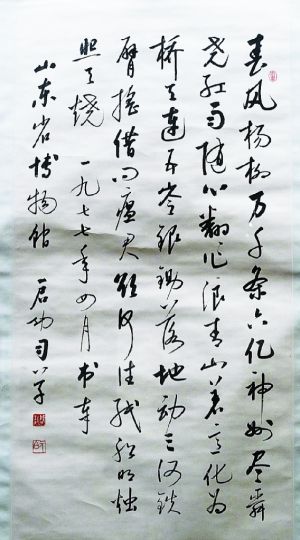 春风杨柳万千条六亿神州尽舜
尧红雨随心翻作浪青山着意化为
桥天连五岭银锄落地动三河铁
臂摇借问瘟君欲何往纸船明烛
照天烧 一九七七年四月书奉
山东省博物馆 启功习字